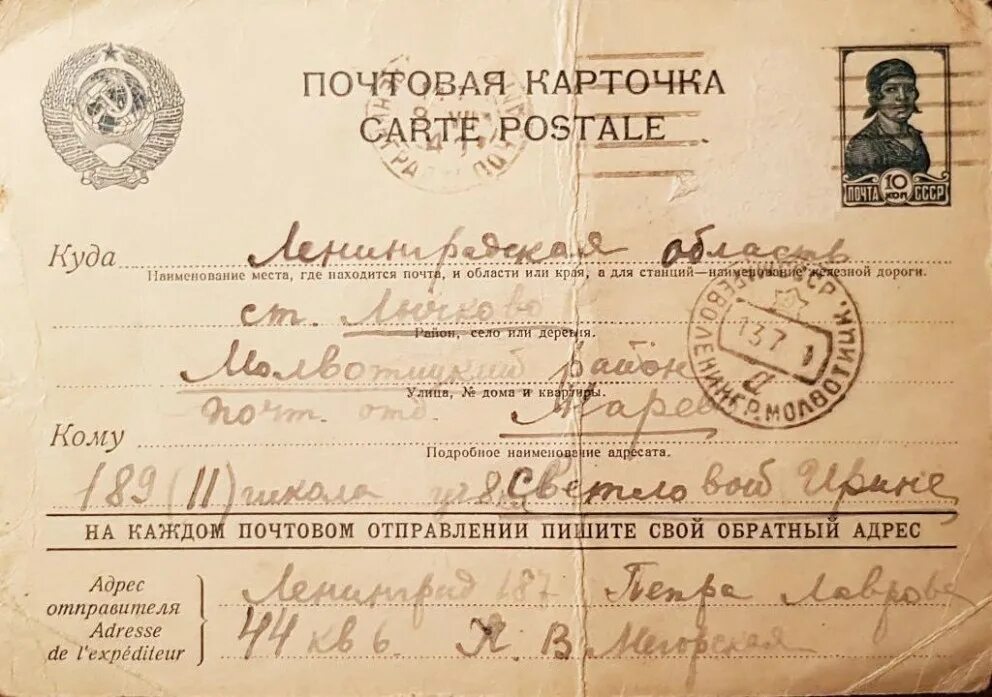 ПОЧТОВАЯ КАРТОЧКА
CARTE POSTALE
ПОЧТА 10 КОП СССР
Куда Ленинградская область
Наименование места, где находится почта, и области или края, а для станций—наименование железной дороги.
ст. Лычково
Район, село или деревня.
Молвотицкий район
Улица, № дома и квартиры.
почт. отд. Марево
Кому
Подробное наименование адресата.
189 (11) школа Светловой Ирине
НА КАЖДОМ ПОЧТОВОМ ОТПРАВЛЕНИИ ПИШИТЕ СВОЙ ОБРАТНЫЙ АДРЕС
Адрес отправителя
Adresse de l'expéditeur
Ленинград 187 Петра Лаврова
44 кв 6. В. Мегорская
МОЛВОТИЦК.
13 7